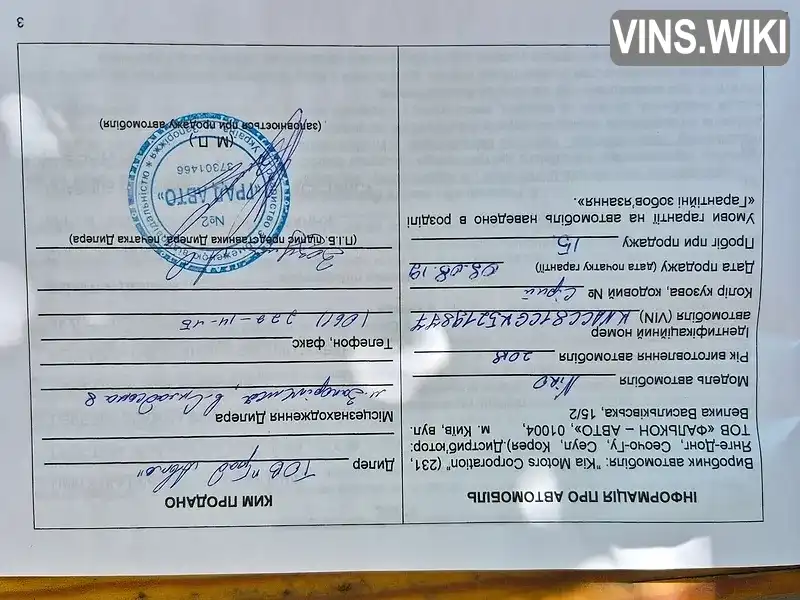 VINS.WIKI
ІНФОРМАЦІЯ ПРО АВТОМОБІЛЬ
Виробник автомобіля: "Kia Motors Corporation" (231,
Янге-Донг, Сеочо-Гу, Сеул, Корея).Дистриб'ютор:
ТОВ «ФАЛЬКОН – АВТО», 01004, м. Київ, вул.
Велика Васильківська, 15/2
Модель автомобіля Niro
Рік виготовлення автомобіля 2018
Ідентифікаційний номер
автомобіля (VIN) KNACC81CGK5219877
Колір кузова, кодовий № Сірий
Дата продажу (дата початку гарантії) 08.08.19
Пробіг при продажу 15
Умови гарантії на автомобіль наведено в розділі
«Гарантійні зобов'язання».
КИМ ПРОДАНО
Дилер ТОВ "Град Авто"
Місцезнаходження Дилера
м. Запоріжжя, 8
Телефон, факс
(061) 228-14-15
(П.І.Б., підпис представника Дилера, печатка Дилера)
№2
«ГРАД АВТО»
37301466
(М.П.)
(заповнюється при продажу автомобіля)
3